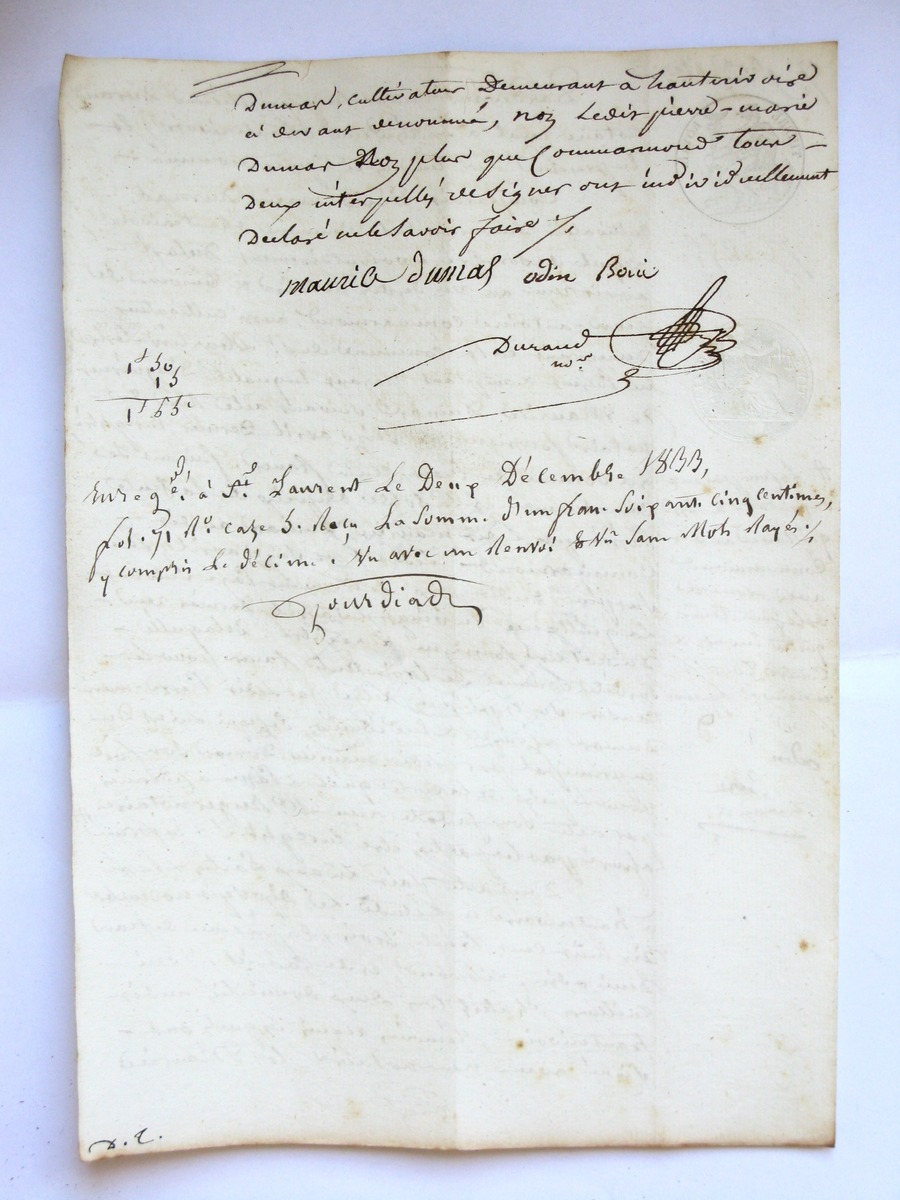 Dumas, cultivateur Demeurant à hauterivoire
ci devant denommé, non Ledit pierre-marie
Dumas Non plus que Commarmond tous
Deux interpellés de signer ont individuellement
Declaré ne le Savoir faire ./.
maurice dumas odin
Durand
no.re
1f 50
15
1f 65c
Enregé. à St. Laurent Le Deux Décembre 1833,
fol. 71 Ro. case 5. Reçu La Somme d'un franc Soixante cinq centimes,
y compris Le décime. Vu avec un Renvoi & Vu Sans Mots Rayés ./.
Jourdiadz
D. E.